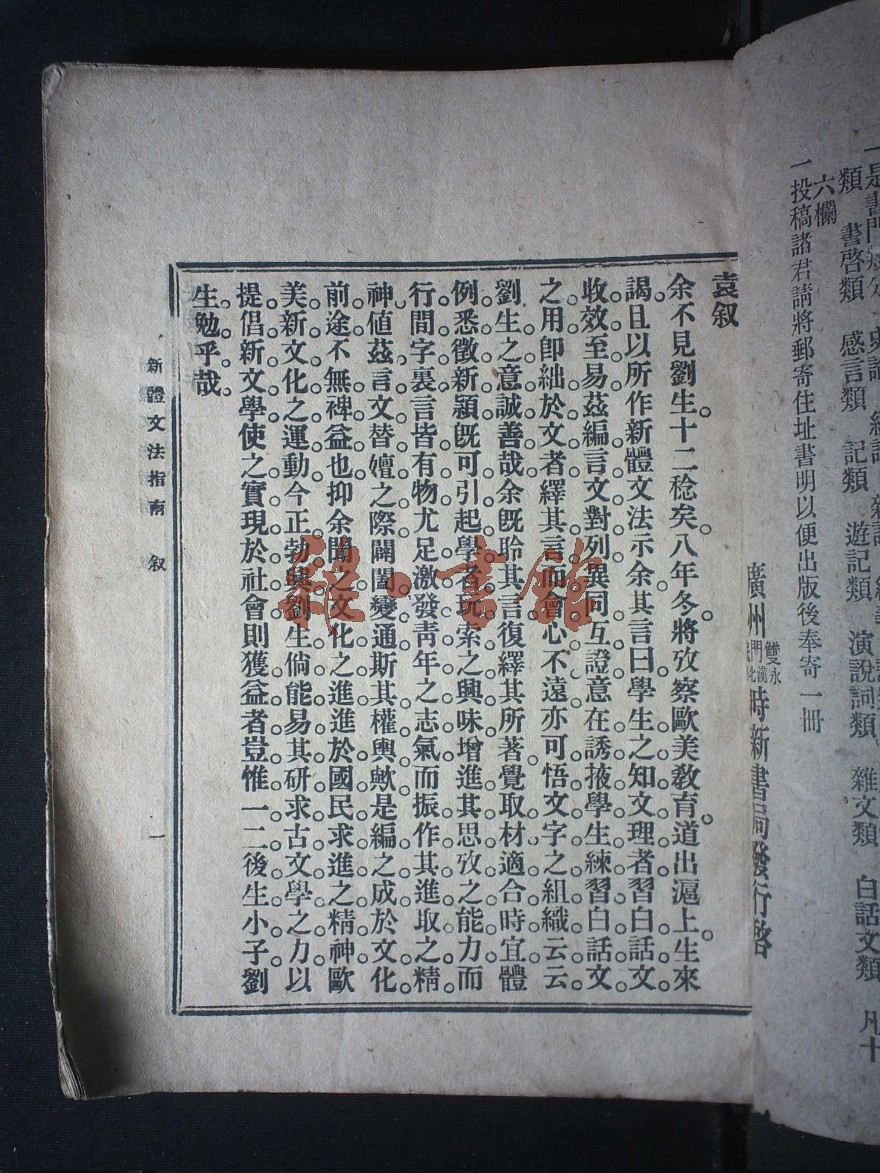 一是書門類分
類　書啓類　感言類　記類　遊記類　演說詞類　雜文類　白話文類　凡十
六欄
一投稿諸君請將郵寄住址書明以便出版後奉寄一冊
廣州雙門永漢北時新書局發行啓
袁叙
余不見劉生十二稔矣。八年冬將攷察歐美教育。道出滬上。生來
謁。且以所作新體文法示余。其言曰。學生之知文理者習白話文
收效至易。茲編言文對列。異同互證。意在誘掖學生練習白話文
之用。卽絀於文者繹其言而會心不遠。亦可悟文字之組織云云
劉生之意誠善哉。余旣聆其言。復繹其所著。覺取材適合時宜。體
例悉徵新穎。旣可引起學者玩索之興味。增進其思攷之能力。而
行間字裏。言皆有物。尤足激發靑年之志氣。而振作其進取之精
神。値茲言文替嬗之際。闢闔變通。斯其權輿歟。是編之成。於文化
前途不無裨益也。抑余聞之文化之進進於國民求進之精神。歐
美新文化之運動今正勃興。劉生倘能易其研求古文學之力以
提倡新文學。使之實現於社會。則獲益者豈惟一二後生小子。劉
生勉乎哉。
新體文法指南　叙　一
雜·書館